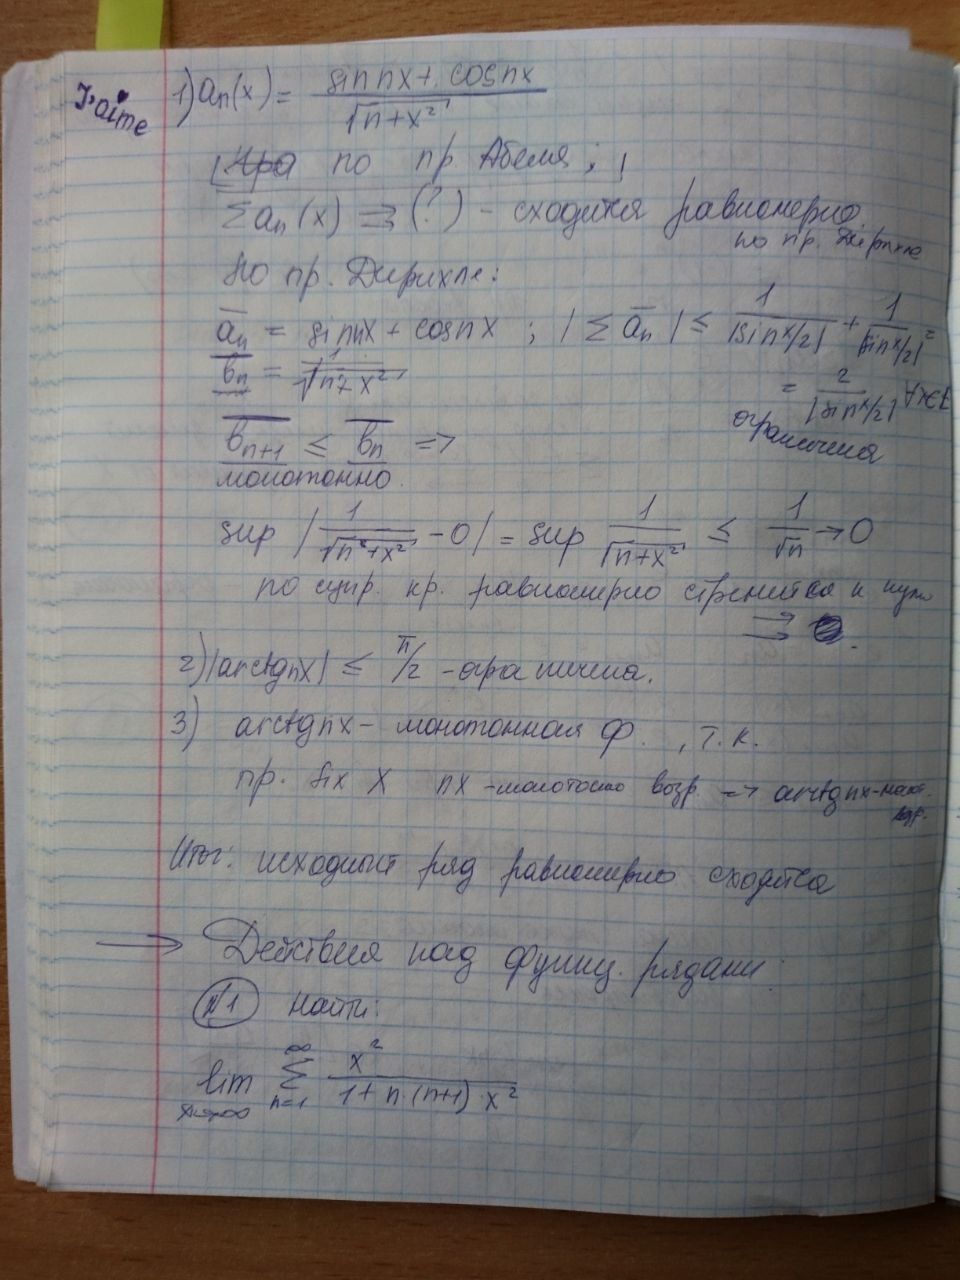 J'aime
1) aₙ(x) = (sin nx + cos nx) / √(n+x²)
по пр. Абеля;
Σ aₙ(x) ⇉ (?) - сходится равномерно
по пр. Дирихле
По пр. Дирихле:
āₙ = sin nx + cos nx ; |Σ āₙ| ≤ 1/|sin x/2| + 1/|sin x/2|
b̄ₙ = 1/√(n+x²)
= 2/|sin x/2| ∀x∈E
ограничена
b̄ₙ₊₁ ≤ b̄ₙ =>
монотонно.
sup |1/√(n+x²) - 0| = sup 1/√(n+x²) ≤ 1/√n → 0
по супр. кр. равномерно стремится к нулю
⇉
2) |arctg nx| ≤ π/2 - ограничена.
3) arctg nx - монотонная ф. , т.к.
пр. fix x nx - монотонно возр. => arctg nx - монот. возр.
Итог: исходный ряд равномерно сходится
→ Действия над функц. рядами:
№1 Найти:
lim x→∞ Σ n=1 ∞ x² / (1 + n·(n+1)·x²)